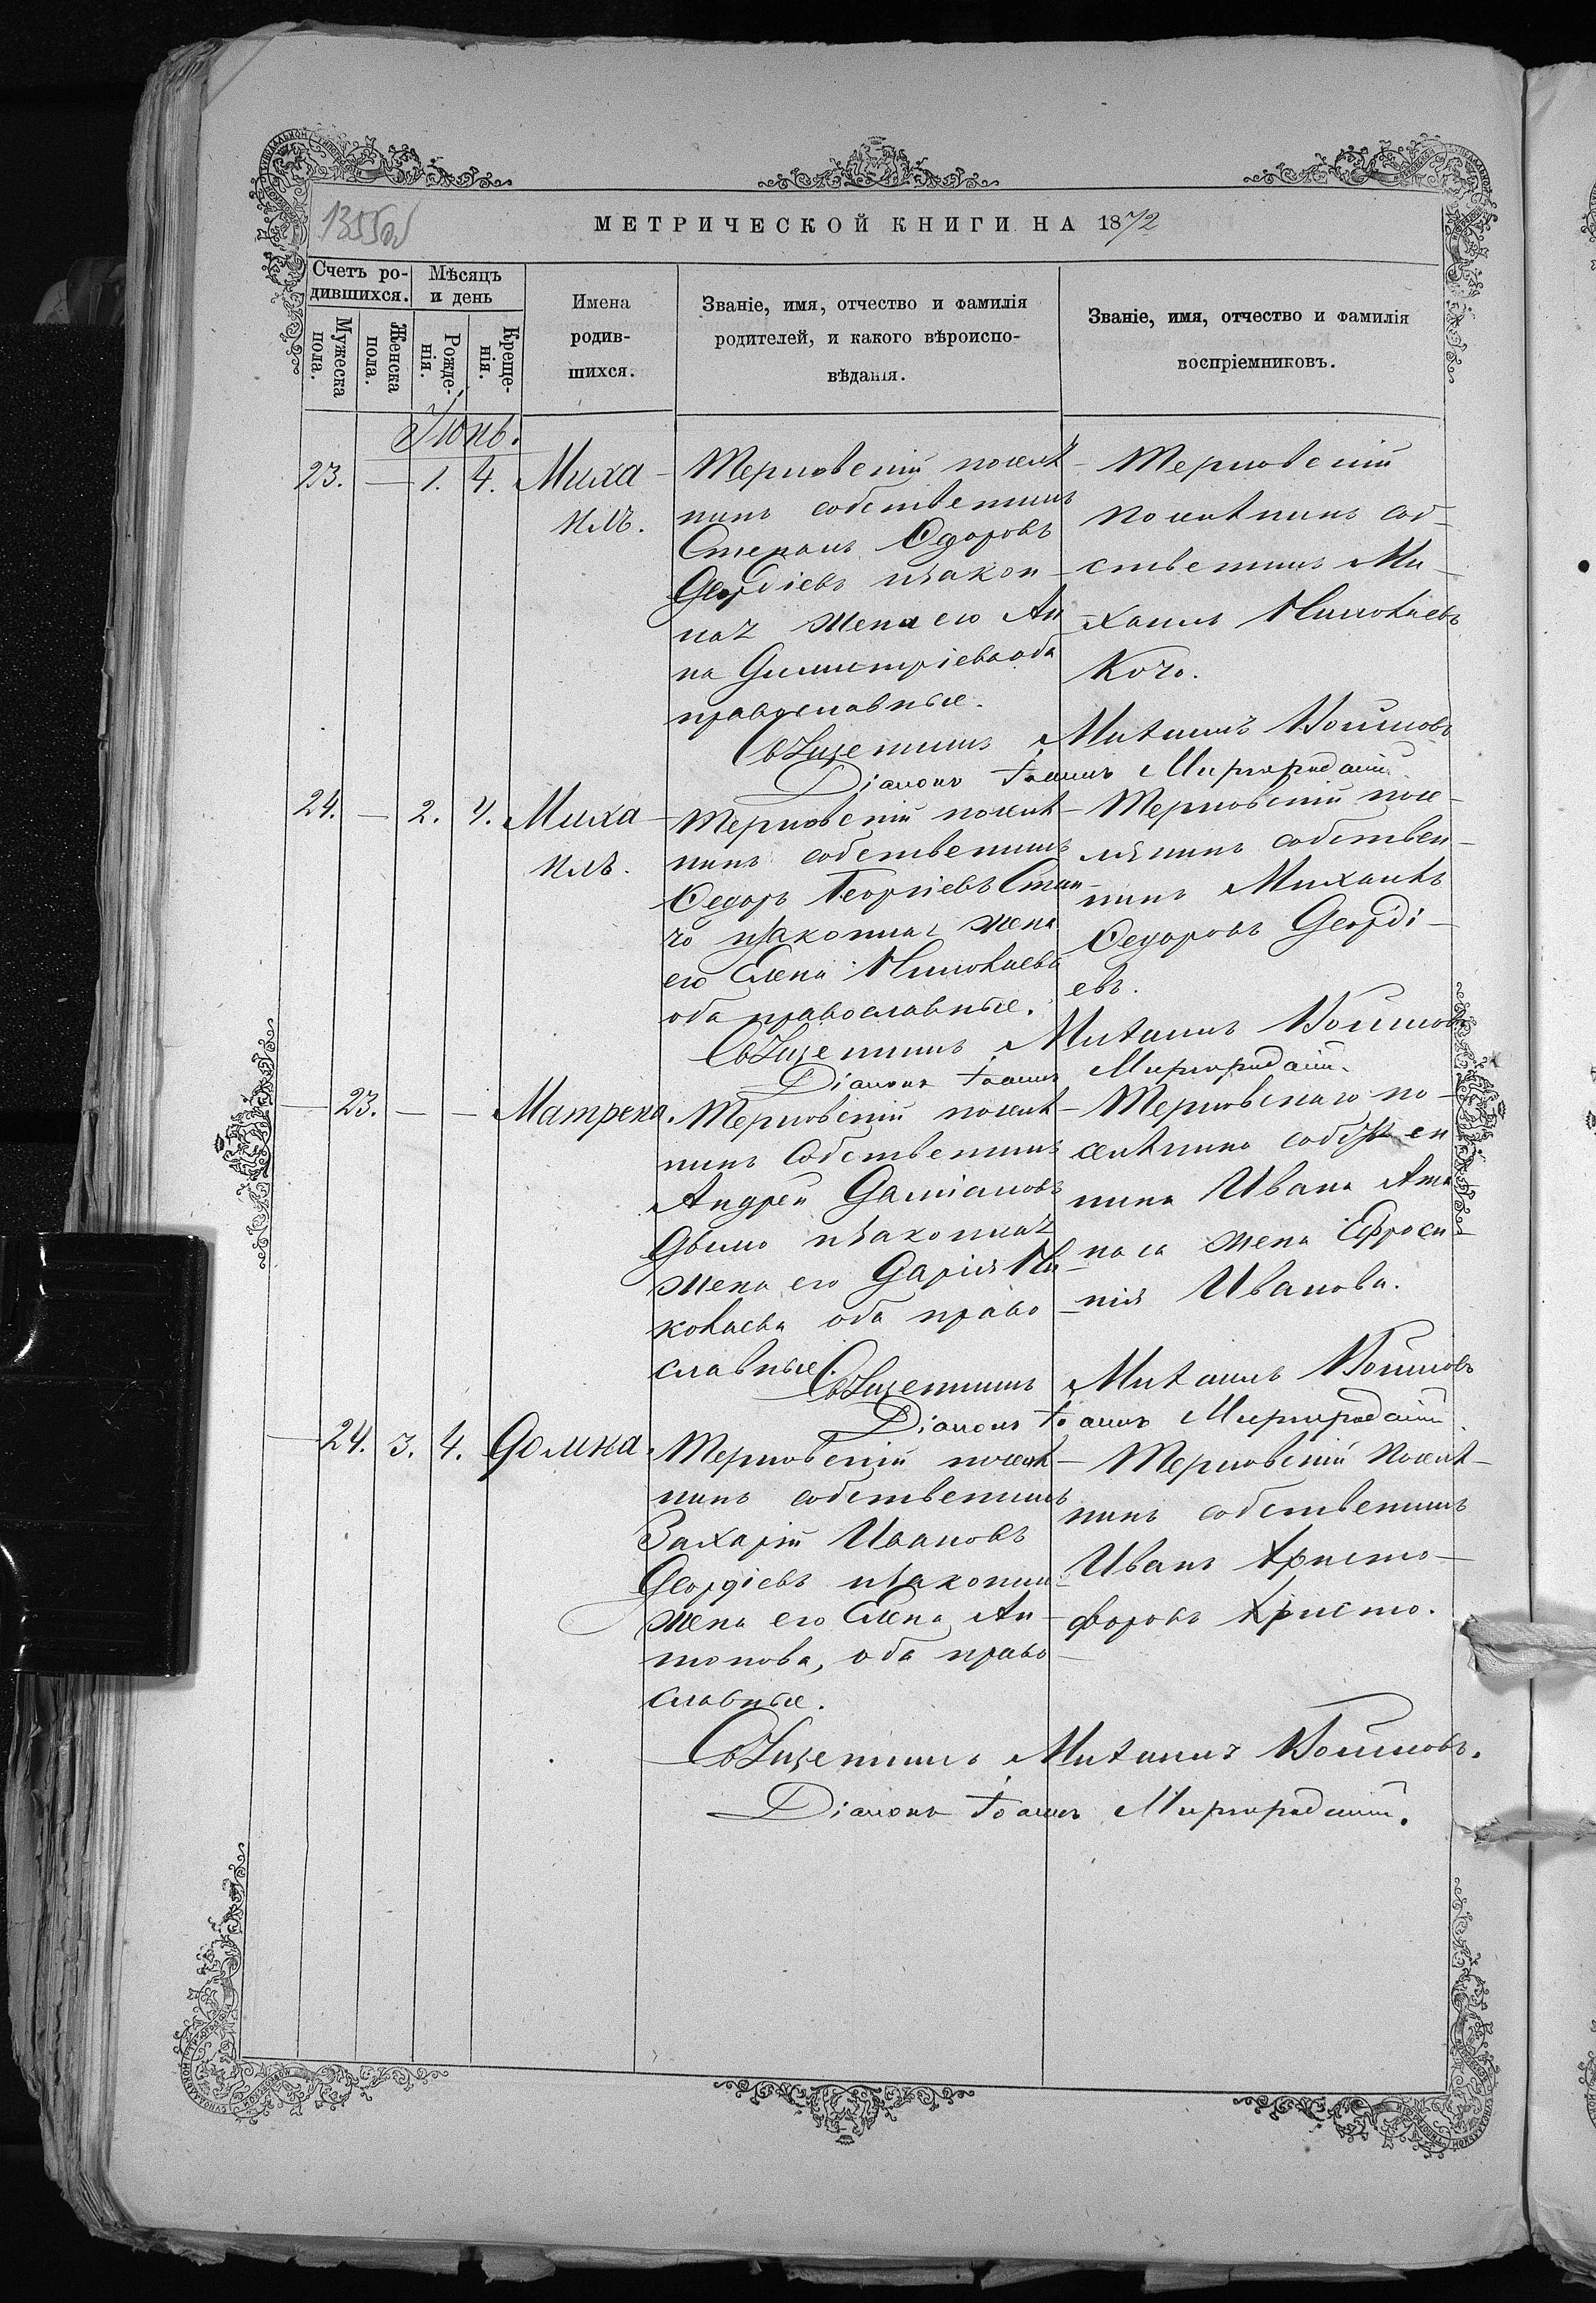 1355об
МЕТРИЧЕСКОЙ КНИГИ НА 1872
Счетъ ро-
дившихся.
Мѣсяцъ
и день
Мужеска
пола.
Женска
пола.
Рожде-
нія.
Креще-
нія.
Имена
родив-
шихся.
Званіе, имя, отчество и фамилія
родителей, и какого вѣроиспо-
вѣданія.
Званіе, имя, отчество и фамилія
воспріемниковъ.
Іюнь.
23. — 1. 4. Миха-
илъ.
Терновскій поселѣ-
нинъ собственникъ
Степанъ Ѳедоровъ
Деордіевъ и закон-
ная жена его Ан
на Димитріева оба
православные.
Терновскій
поселѣнинъ соб-
ственникъ Ми-
хаилъ Николаевъ
Кочо.
Священникъ Михаилъ Войновъ
Діаконъ Іоаннъ Миргородскій.
24. — 2. 4. Миха-
илъ.
Терновскій поселѣ-
нинъ собственникъ
Ѳедоръ Георгіевъ Стан-
чо и законная жена
его Елена Николаева
оба православные.
Терновскій посе-
лянинъ собствен-
никъ Михаилъ
Ѳедоровъ Деорді-
евъ.
Священникъ Михаилъ Войновъ
Діаконъ Іоаннъ Миргородскій.
— 23. — — Матрена.
Терновскій поселѣ-
нинъ собственникъ
Андрей Даміановъ
и законная
жена его Дарія Ни-
колаева оба право-
славные.
Терновскаго по-
селѣнина собствен
ника Ивана Ата
наса жена Ефроси-
нія Иванова.
Священникъ Михаилъ Войновъ
Діаконъ Іоаннъ Миргородскій
— 24. 3. 4. Домка.
Терновскій поселѣ-
нинъ собственникъ
Захарій Ивановъ
Деордіевъ и законн.
жена его Елена Ан-
тонова, оба право-
славные.
Терновскій поселѣ-
нинъ собственникъ
Иванъ Христо-
форовъ Христо.
Священникъ Михаилъ Войновъ.
Діаконъ Іоаннъ Миргородскій.